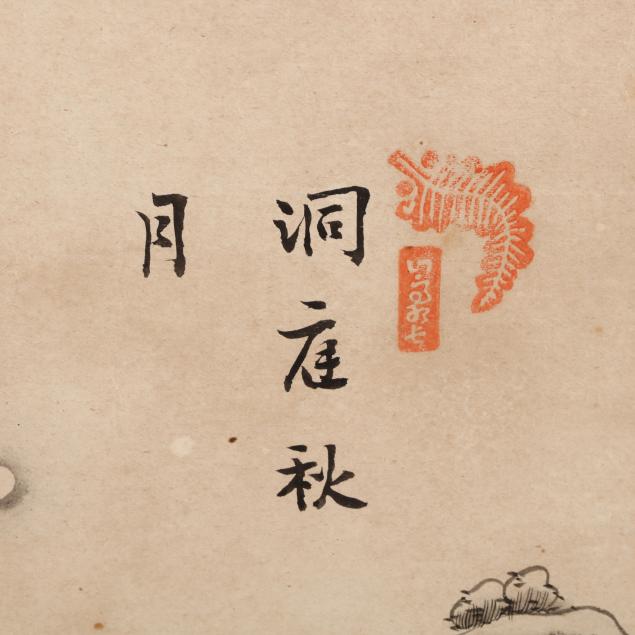 洞庭秋
月